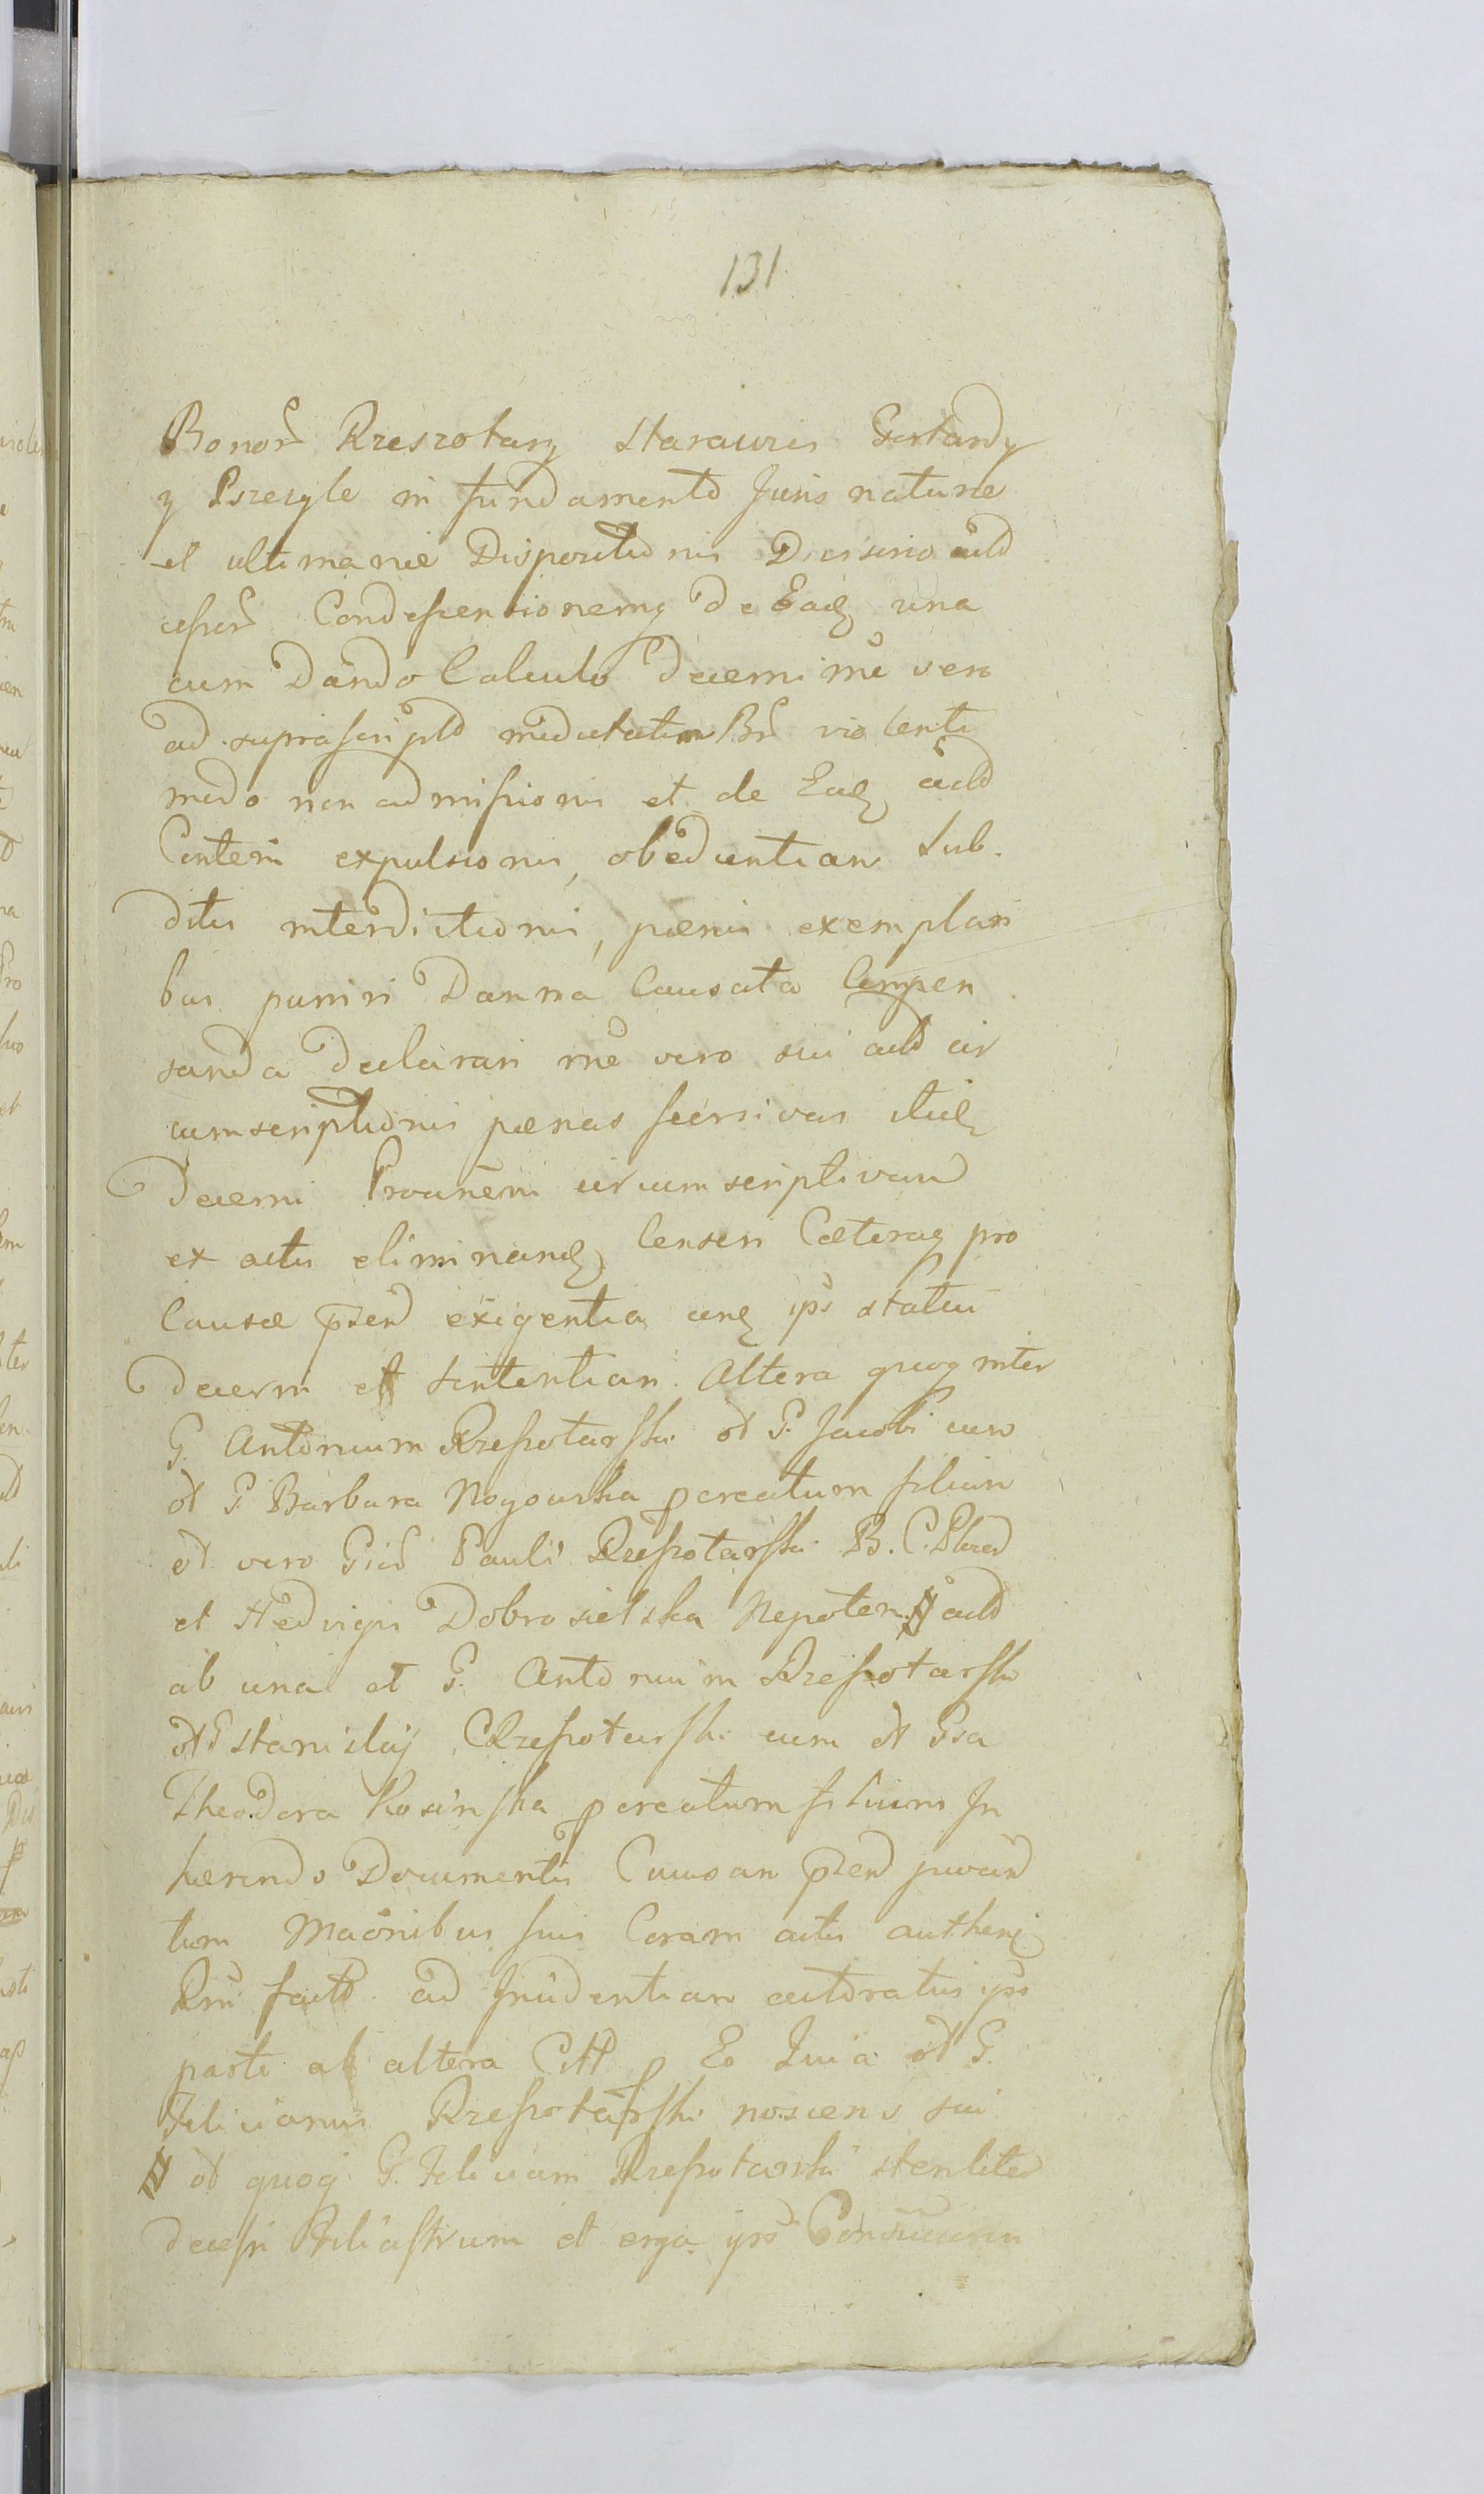 131
Bonor Rzeszotary Starawies Gortardy
y Pszezyle in fundamento Juris naturae
et ultimariae Dispositionis Divisino actd
cessor Condescensionemq de Eadq una
cum Dando Calculo decerni me vero
ad suprascriptd medietatem Br violenti
modo non admissionis et de Eadq actd
Conteri expulsionis, obedientiam Sub
ditis interdictionis, paenis exemplari
bus puniri Damna Causata Compen
sanda declarari me vero sui actd cir
cumscriptionis paenas itidq
decerni circumscriptivam
ex actis eliminandq Censeri Caeteraq pro
Causae pzend exigentia eandq ips statui
decerni et Sententiam. Altera quoq inter
G. Antonium Rzeszotarski ol G. Jacobi cum
ol G. Barbara Nogowska pcreatum filium
ol vero Gnd Pauli Rzeszotarski B. C. Plocen
et Hedvigis Dobrosielska Nepotem # actd
ab una et G. Antonium Rzeszotarski
ol G Stanislaj Rzeszotarski cum ol Gsa
Theodora Kosinska pcreatum filium In
haerendo Documentis Causam pzend juvand
tum Maonibus suis Coram actis authen
Rni factd ad Inudentiam actoratus ips
parte ab altera Citt p Eo Quia ol G.
Felicianus Rzeszotarski nosiens sui
# ol quoq G. Feliciani Rzeszotarski steriliter
decessi Filiastrum et erga ips